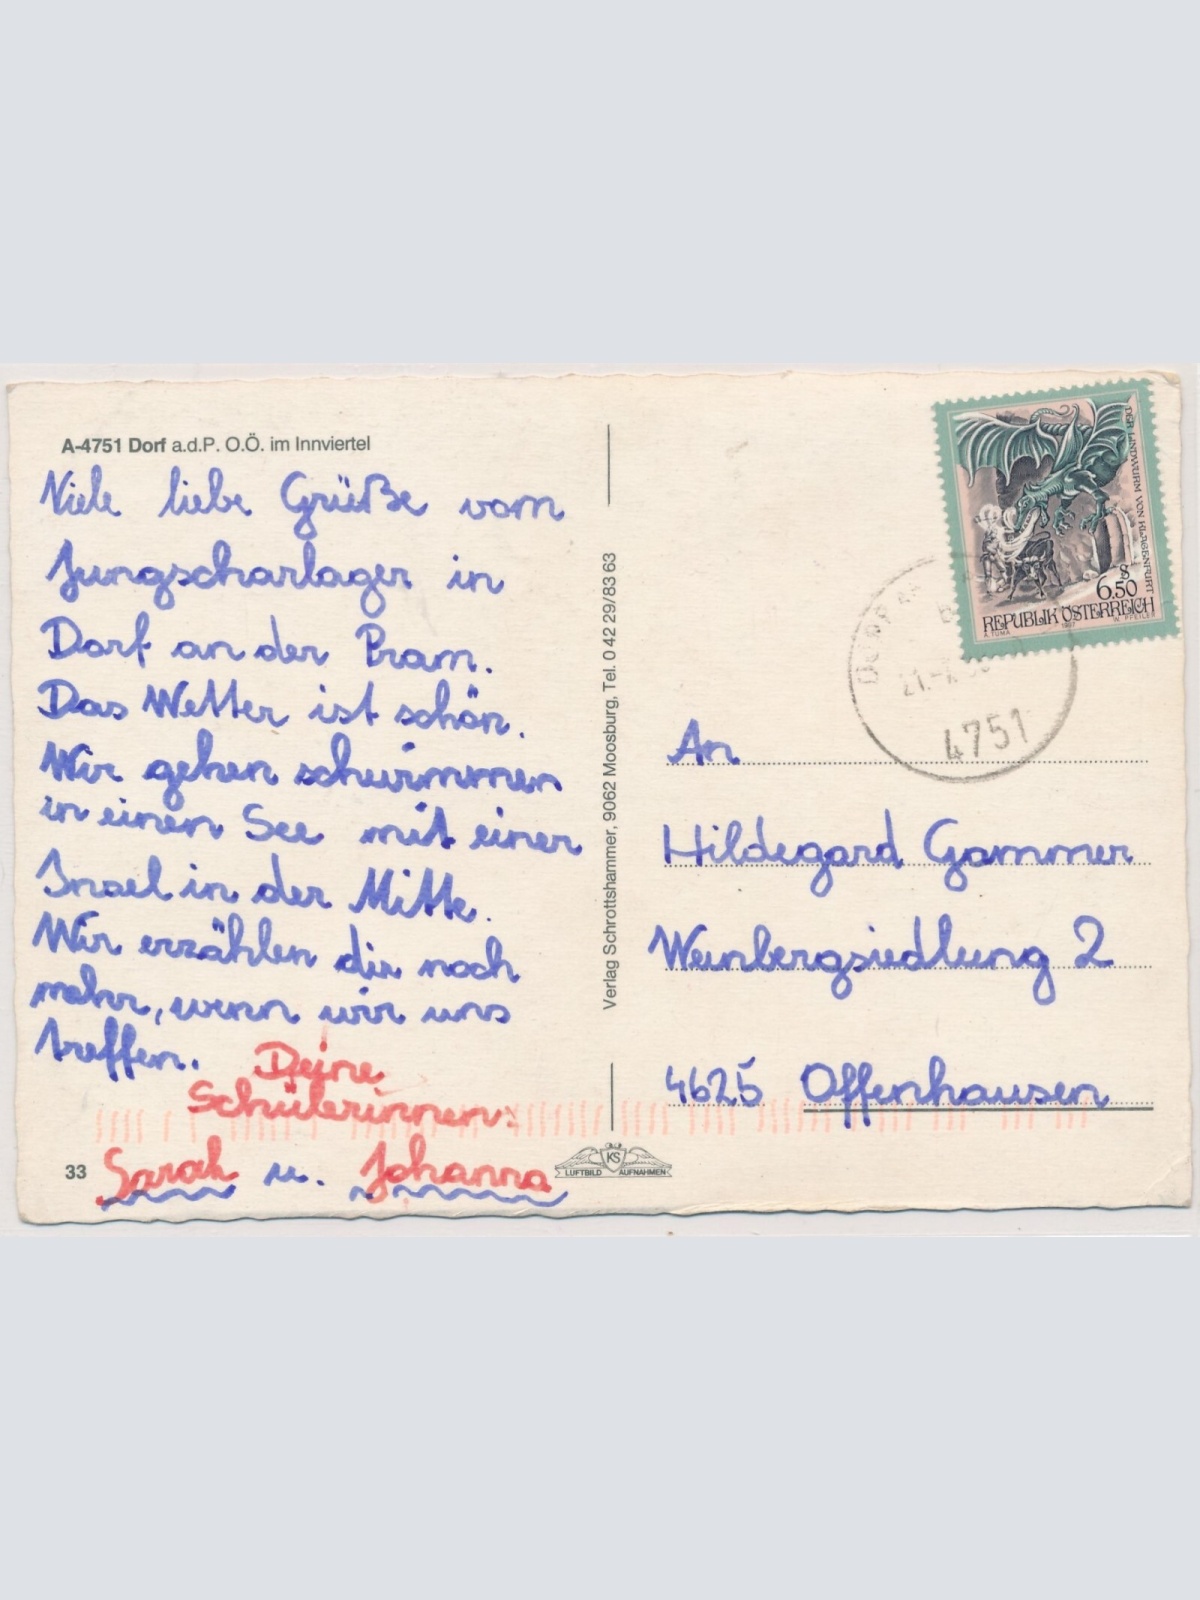 A-4751 Dorf a.d.P. O.Ö. im Innviertel
Viele liebe Grüße vom
Jungscharlager in
Dorf an der Pram.
Das Wetter ist schön.
Wir gehen schwimmen
in einen See mit einer
Insel in der Mitte.
Wir erzählen dir noch
mehr, wenn wir uns
treffen.
Deine
Schülerinnen:
Sarah u. Johanna
33
Verlag Schrottshammer, 9062 Moosburg, Tel. 0 42 29/83 63
KS
LUFTBILD AUFNAHMEN
DER LINDWURM VON KLAGENFURT
S
6.50
REPUBLIK ÖSTERREICH
A. TUMA 1997 W. PFEILER
4751
An
Hildegard Gammer
Weinbergsiedlung 2
4625 Offenhausen